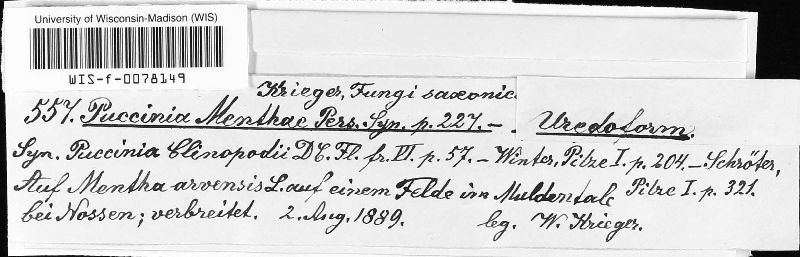 University of Wisconsin-Madison (WIS)
WIS-f-0078149
Krieger, Fungi saxonic
557. Puccinia Menthae Pers. Syn. p. 227. — Uredoform.
Syn. Puccinia Clinopodii DC. Fl. fr. VI. p. 57. — Winter, Pilze I. p. 204. — Schröter, Pilze I. p. 321.
Auf Mentha arvensis L. auf einem Felde im Muldentale
bei Nossen; verbreitet. 2. Aug. 1889. leg. W. Krieger.